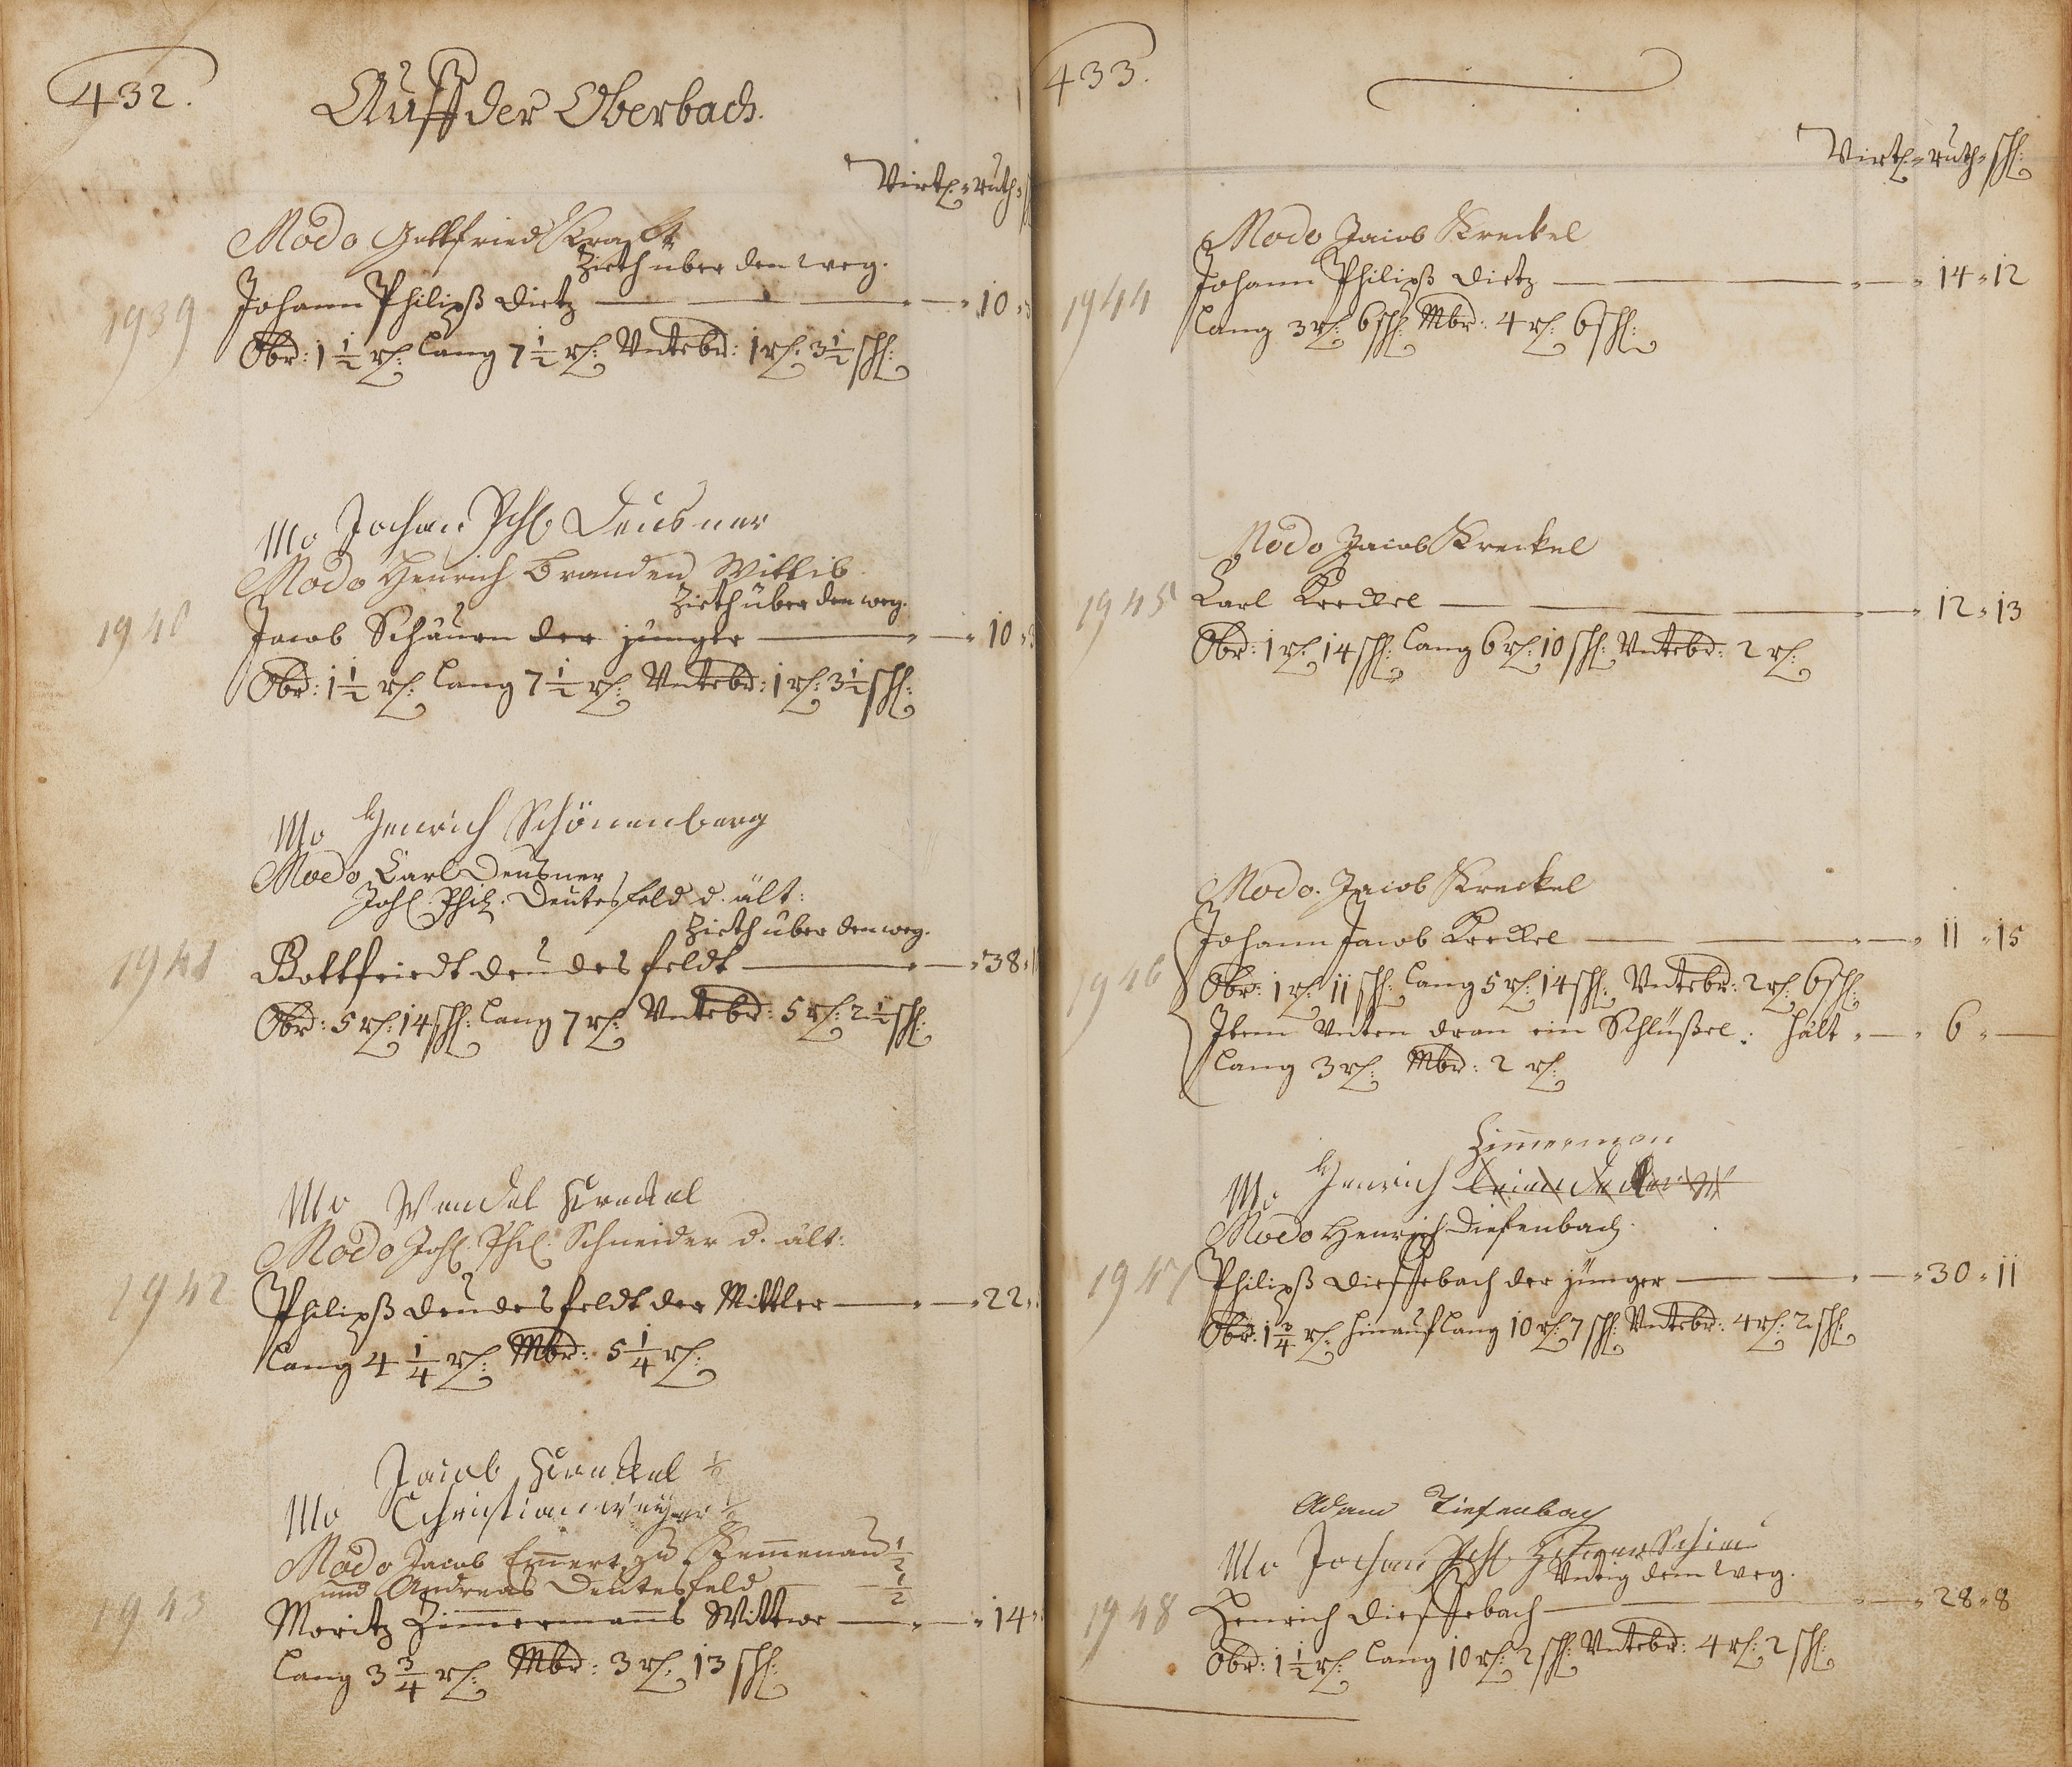 432.
Auff der Oberbach.
Virtl. ruth
Modo Gottfried Krafft
Zieth über den weg.
1939 Johann Philipß Dietz — 10
Obr: 1 1/2 rt: lang 7 1/2 rt: Vnterbr: 1 rt: 3 1/2 sch:
Mo Johan Phl Deusner
Modo Henrich Branden Wittib
Zieth über den weg.
1940 Jacob Schäuren der jünger — 10
Obr: 1 1/2 rt: lang 7 1/2 rt: Vnterbr: 1 rt: 3 1/2 sch:
Mo Henrich Schönenberg
Modo Carl Deusner
Joh. Phil. Deutesfeld d. ält:
Zieth über den weg.
1941 Gottfriedt deudesfeldt — 38
Obr: 5 rt: 14 sch: lang 7 rt: Vnterbr: 5 rt: 2 1/2 sch:
Mo Wendel Kreckel
Modo Joh. Phil. Schneider d. ält:
1942 Philipß deudesfeldt der Mittler — 22
lang 4 1/4 rt: Mbr: 5 1/4 rt:
Jacob Kreckel 1/2
Mo Christian weyer 1/2
Modo Jacob Emert zu Kemenau 1/2
und Andreas Deutesfeld — 1/2
1943 Moritz Zimmermanns Wittwe — 14
lang 3 3/4 rt: Mbr: 3 rt: 13 sch:
433.
Virtl. ruth sch:
Modo Jacob Kreckel
1944 Johann Philipß Dietz — 14 12
lang 3 rt: 6 sch: Mbr: 4 rt: 6 sch:
Modo Jacob Kreckel
1945 Carl Kreckel — 12 13
Obr: 1 rt: 14 sch: lang 6 rt: 10 sch: Vnterbr: 2 rt:
Modo. Jacob Kreckel
Johann Jacob Kreckel — 11 15
1946 Obr: 1 rt: 11 sch: lang 5 rt: 14 sch: Vnterbr: 2 rt: 6 sch:
Item Vnten dran ein Schlüßel: hält — 6 —
lang 3 rt: Mbr: 2 rt:
Zimmerman
Mo Henrich
Modo Henrich Diefenbach.
1947 Philipß Dieffebach der jünger — 30 11
Obr: 1 3/4 rt: hinauf lang 10 rt: 7 sch: Vnterbr: 4 rt: 2 sch:
Adam Tiefenbach
Mo Johan Phl
Vntig dem Weg.
1948 Henrich Dieffebach — 28 8
Obr: 1 1/2 rt: lang 10 rt: 2 sch: Vnterbr: 4 rt: 2 sch: